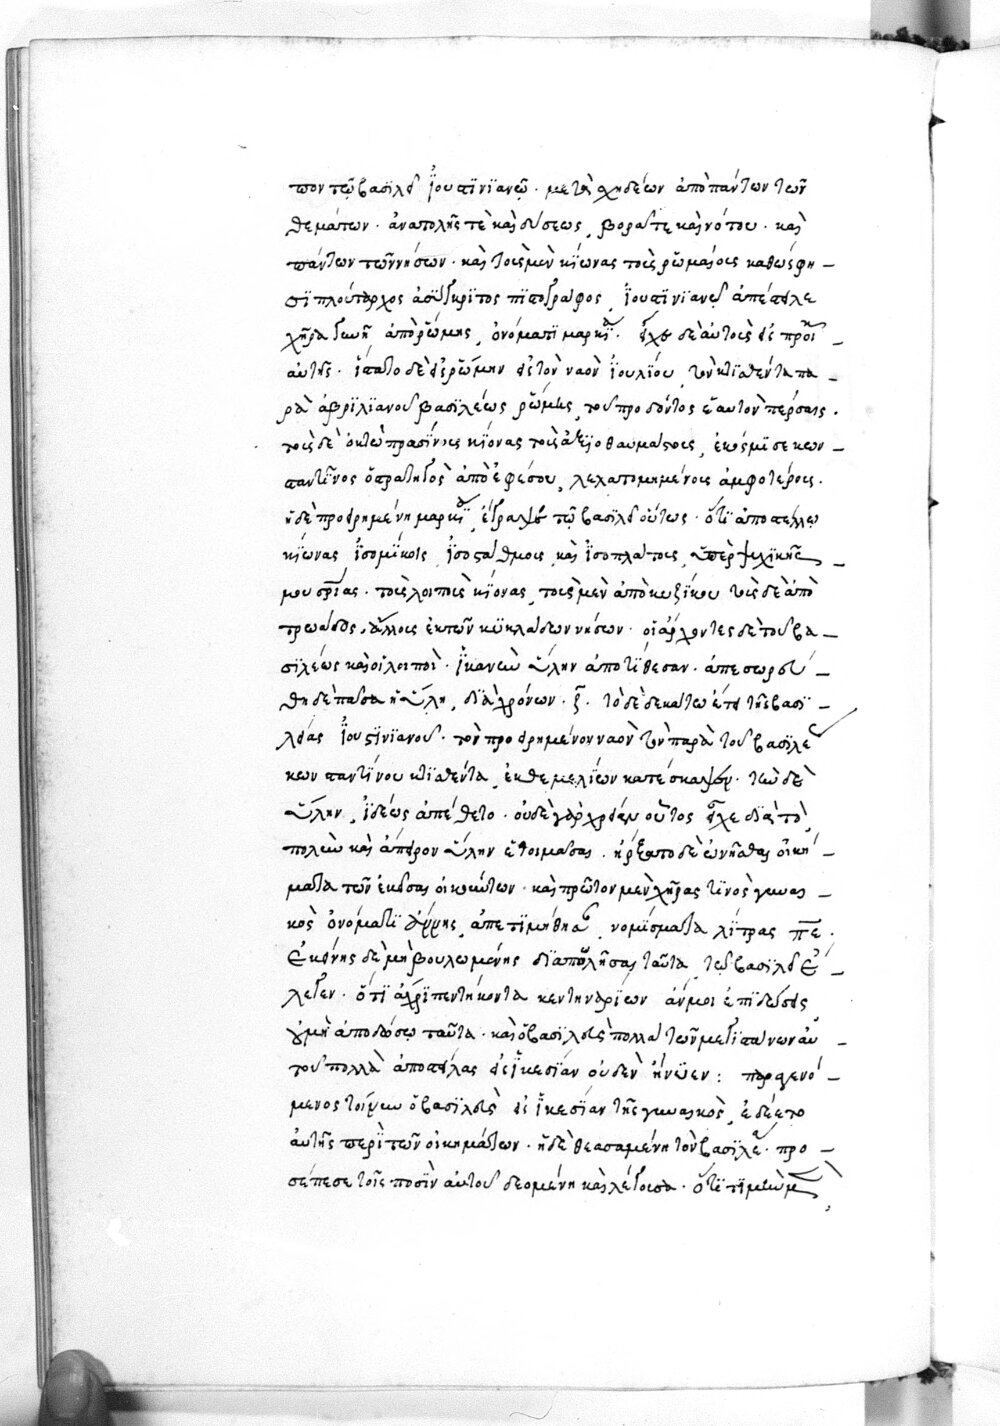 πον τῶ βασιλεῖ ἰουστινιανῶ · μετὰ σχηδίων ἀπὸ πάντων τῶν
θεμάτων · ἀνατολῆς τὲ καὶ δύσεως, βορᾶ τε καὶ νότου · καὶ
πάντων τῶν νήσων · καὶ τοὺς μὲν κίωνας τοὺς ῥωμαίους καθώς φη –
σι πλούταρχος
χήρα ζωὴ, ἀπὸ ῥώμης, ὀνόματι μαρκία · εἶχε δὲ αὐτοὺς εἰς προῖκα –
αὐτῆς · ἵστατο δὲ εἰς ῥώμην εἰς τὸν ναὸν ἡουλίου, τὸν κτισθέντα πα –
ρὰ ἀβριλιανοῦ βασιλέως ῥώμης, τοῦ προδόντος ἑαυτὸν πέρσαις ·
τοὺς δὲ ὀκτὼ πρασίνους κίονας τοὺς ἀξιοθαυμάστους, ἐκόμισε κων –
σταντῖνος στρατηγὸς ἀπὸ ἐφέσου, λελατομημένους ἀμφοτέρους ·
ἡ δὲ προειρημένη μαρκία, ἔγραψε τῶ βασιλεῖ οὕτως · ὅτι ἀποστέλλω
κίωνας ἰσομίκους, ἰσοστάθμους, καὶ ἰσοπλάτους, ὑπὲρ ψυχικῆς –
μου σωτηρίας · τοὺς λοιποὺς κίονας, τοὺς μὲν ἀπὸ κυζίκου τοὺς δὲ ἀπὸ
τρωάδος, ἄλλους ἐκ τῶν κυκλάδων νήσων · οἱ ἄρχοντες δὲ τοῦ βα –
σιλέως καὶ οἱ λοιποὶ · ἱκανὴν ὕλην ἀποτίθεσαν · ἀπεσωρεύ –
θη δὲ πᾶσα ἡ ὕλη, διὰ χρόνων · ζ · τὸ δὲ δεκάτω ἔτει τῆς βασι –
λείας ἰουστινιανοῦ · τὸν προειρημένον ναὸν τὸν παρὰ τοῦ βασιλέως
κωνσταντίνου κτισθέντα, ἐκ θεμελίων κατέσκαψεν · τὴν δὲ
ὕλην, ἰδίως ἀπέθετο · οὐδὲ γὰρ χρείαν οὗτος εἶχε διὰ τὸ,
πολλὴν καὶ ἄπειρον ὕλην ἑτοιμάσας · ἤρξατο δὲ ὠνῆσθαι οἰκή –
ματα τῶν ἐκεῖσαι οἰκούντων · καὶ πρῶτον μὲν χήρας τινὸς γυναι –
κὸς ὀνόματι ἄννης, ἀπετιμήθησαν, νομίσματα λίτρας πε ·
ἐκείνης δὲ μὴ βουλωμένης διαπολῆσαι ταῦτα, τῶ βασιλεῖ ἔ –
λεγεν · ὅτι ἄχρι πεντήκοντα κεντηναρίων
μὴ ἀποδόσω ταῦτα · καὶ ὁ βασιλεὺς πολλὰ τῶν μεγιστάνων αὐ –
τοῦ πολλὰ ἀποστείλας εἰς ἱκεσίαν οὐδὲν ἤνυεν : παραγενό –
μενος τοίνυν ὁ βασιλεὺς εἰς ἱκεσίαν τῆς γυναικὸς, ἐδέετο
αὐτῆς περὶ τῶν οἰκημάτων · ἡ δὲ θεασαμένη τὸν βασιλέα · προ –
σέπεσε τοῖς ποσὶν αὐτοῦ δεομένη καὶ λέγουσα · ὅτι τιμὴν μὲν